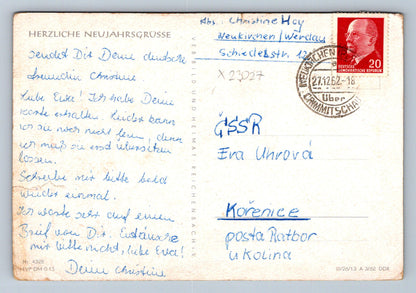 HERZLICHE NEUJAHRSGRÜSSE
sendet Dir Deine deutsche
Freundin Christine
Liebe Eva! Ich habe Deine
Karte erhalten. Leider kann
ich sie noch nicht lesen, denn
ich muß sie erst übersetzen
lassen.
Schreibe mir bitte bald
wieder einmal.
Ich warte sehr auf einen
Brief von Dir. Enttäusche
mir bitte nicht, liebe Eva!
Deine Christine
Nr. 4329
HVP DM 0,12
VERLAG UND HEIMAT REICHENBACH
Abs: Christine Hoy
Neukirchen/Werdau
Schiedelstr. 12
X 23027
20
DEUTSCHE
DEMOKRATISCHE REPUBLIK
NEUKIRCHEN
27.12.62-18
über
CRIMMITSCHAU
ČSSR
Eva Uhrová
Kořenice
posta Ratboř
u Kolína
A 3/62 DDR